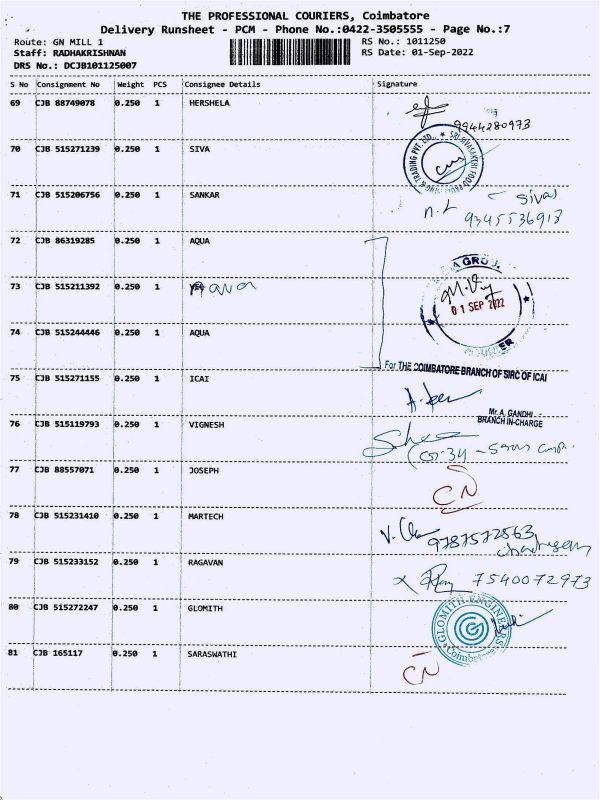 THE PROFESSIONAL COURIERS, Coimbatore
Delivery Runsheet - PCM - Phone No.:0422-3505555 - Page No.:7
Route: GN MILL 1
RS No.: 1011250
Staff: RADHAKRISHNAN
RS Date: 01-Sep-2022
DRS No.: DCJB101125007
S No Consignment No Weight PCS Consignee Details Signature
69 CJB 88749078 0.250 1 HERSHELA
9944280973
70 CJB 515271239 0.250 1 SIVA
71 CJB 515206756 0.250 1 SANKAR
Siva
9345536918
72 CJB 86319285 0.250 1 AQUA
73 CJB 515211392 0.250 1
01 SEP 2022
74 CJB 515244446 0.250 1 AQUA
For THE COIMBATORE BRANCH OF SIRC OF ICAI
75 CJB 515271155 0.250 1 ICAI
Mr. A. GANDHI
BRANCH IN-CHARGE
76 CJB 515119793 0.250 1 VIGNESH
77 CJB 88557071 0.250 1 JOSEPH
CN
78 CJB 515231410 0.250 1 MARTECH
9787572863
79 CJB 515233152 0.250 1 RAGAVAN
7540072973
80 CJB 515272247 0.250 1 GLOMITH
GLOMITH ENGINEERS
Coimbatore
81 CJB 165117 0.250 1 SARASWATHI
CN